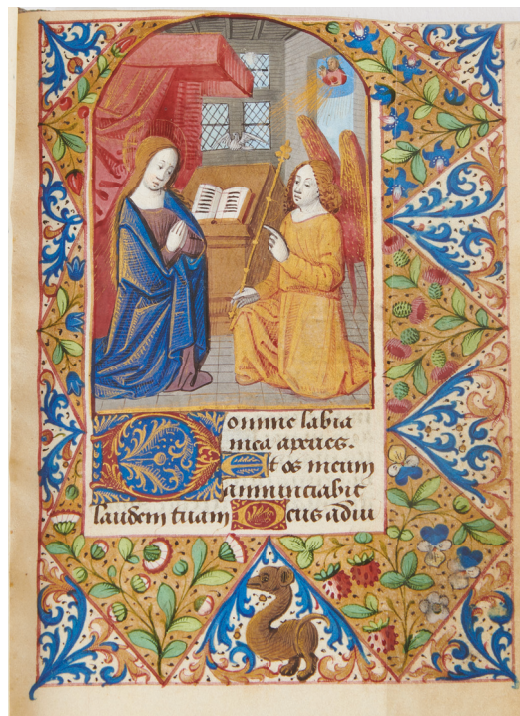 Domine labia
mea aperies.
Et os meum
annunciabit
laudem tuam Deus adiu